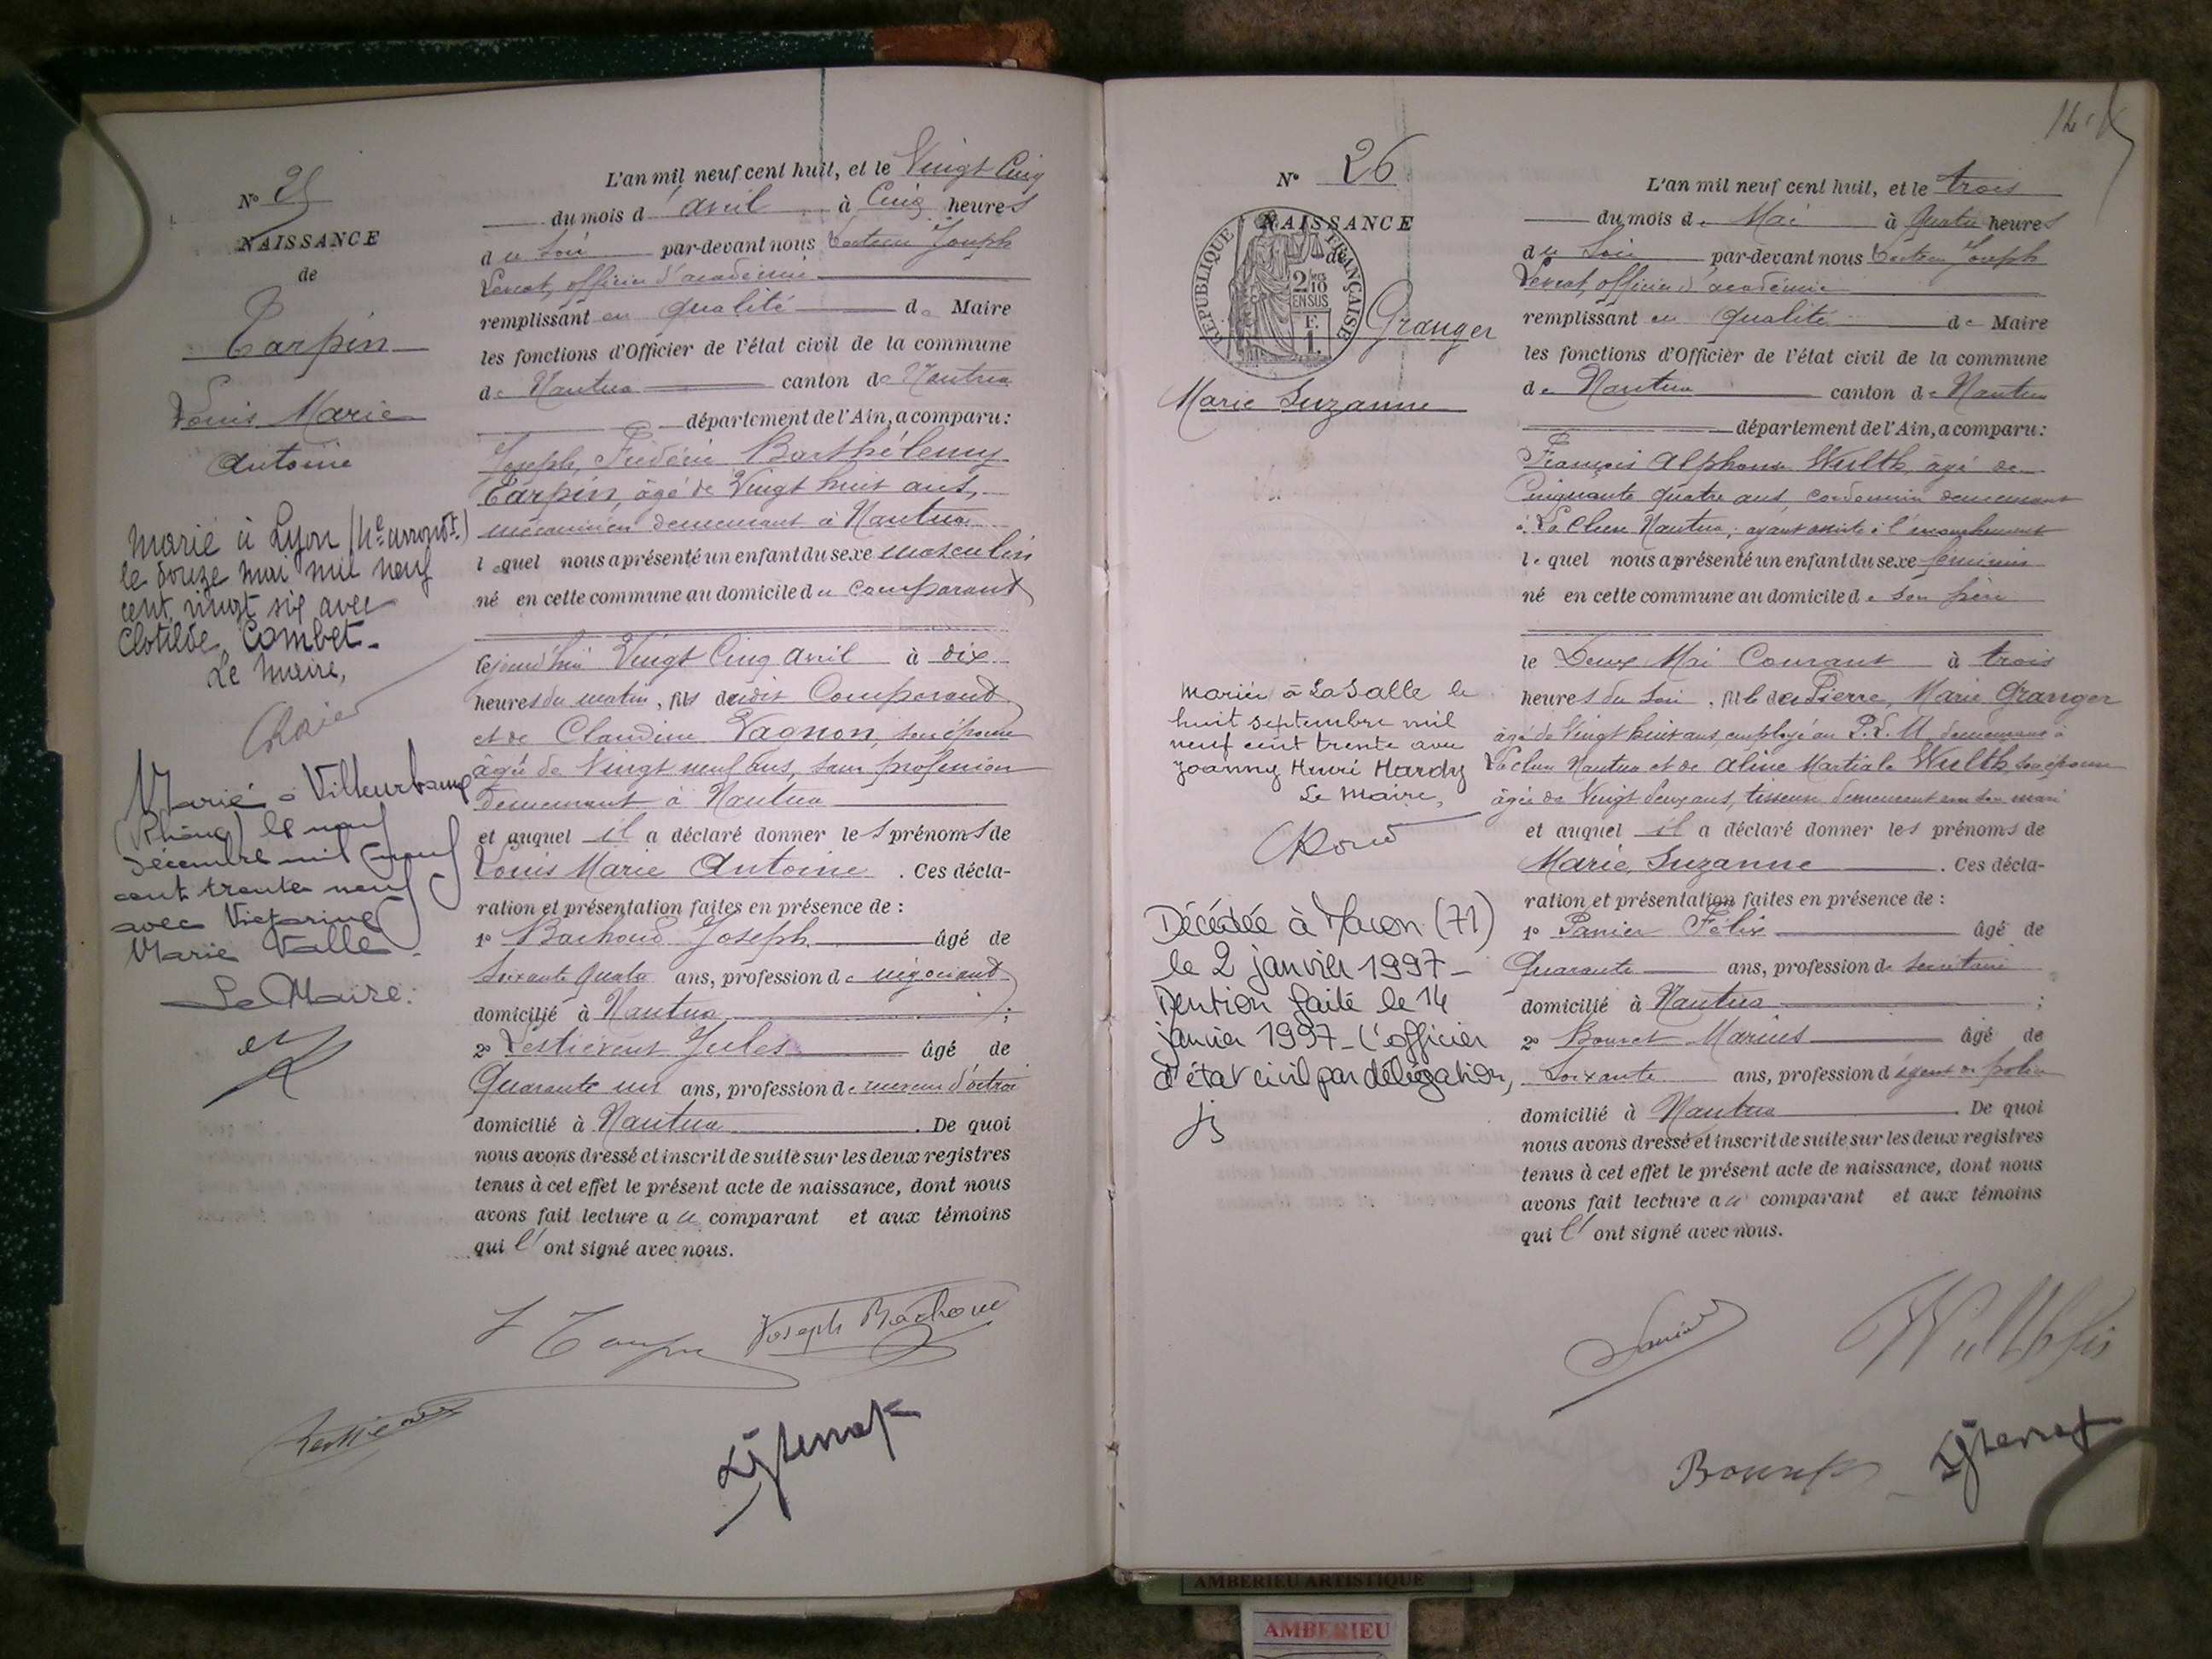 N° 25
NAISSANCE
de
Tarpin
Louis Marie
Antoine
Marié à Lyon (4e arrondt.)
le douze mai mil neuf
cent vingt six avec
Clotilde Combet.
Le Maire,
Marié à Villeurbanne
(Rhône) le neuf
décembre mil neuf
cent trente neuf
avec Victorine
Marie Valle.
Le Maire:
L'an mil neuf cent huit, et le Vingt Cinq
du mois d'avril à Cinq heures
du Soir par-devant nous Joseph
officier d'académie
remplissant en qualité de Maire
les fonctions d'Officier de l'état civil de la commune
de Nantua canton de Nantua
département de l'Ain, a comparu:
Joseph, Frédéric Barthélemy
Tarpin, âgé de Vingt huit ans,
mécanicien demeurant à Nantua
lequel nous a présenté un enfant du sexe masculin
né en cette commune au domicile du Comparant
lejourd'hui Vingt Cinq avril à dix
heures du matin, fils dudit Comparant
et de Claudine Vagnon, son épouse
âgée de Vingt neuf ans, sans profession
demeurant à Nantua
et auquel il a déclaré donner les prénoms de
Louis Marie Antoine. Ces décla-
ration et présentation faites en présence de:
1° Bachoud Joseph âgé de
Soixante quatre ans, profession de négociant
domicilié à Nantua;
2° Jules âgé de
Quarante un ans, profession de d'octroi
domicilié à Nantua. De quoi
nous avons dressé et inscrit de suite sur les deux registres
tenus à cet effet le présent acte de naissance, dont nous
avons fait lecture au comparant et aux témoins
qui l'ont signé avec nous.
Joseph Bachoud
N° 26
NAISSANCE
de
RÉPUBLIQUE FRANÇAISE
2/10
EN SUS
F.
1.
Granger
Marie Suzanne
Mariée à La Salle le
huit septembre mil
neuf cent trente avec
Joanny Henri Hardy
Le Maire,
Décédée à Macon (71)
le 2 janvier 1997-
Mention faite le 14
janvier 1997- L'officier
d'état civil par délégation,
L'an mil neuf cent huit, et le trois
du mois de Mai à Quatre heures
du Soir par-devant nous Joseph
officier d'académie
remplissant en qualité de Maire
les fonctions d'Officier de l'état civil de la commune
de Nantua canton de Nantua
département de l'Ain, a comparu:
François Alphonse Wulth, âgé de
Cinquante quatre ans, cordonnier demeurant
à La Cluse Nantua; ayant assisté à l'accouchement
lequel nous a présenté un enfant du sexe féminin
né en cette commune au domicile de son père
le Deux Mai Courant à trois
heures du Soir, fille de Pierre, Marie Granger
âgé de Vingt huit ans, employé au P.L.M, demeurant à
La Cluse Nantua et de Aline Martiale Wulth, son épouse
âgée de Vingt deux ans, tisseuse demeurant avec son mari
et auquel il a déclaré donner les prénoms de
Marie, Suzanne. Ces décla-
ration et présentation faites en présence de:
1° Panier Félix âgé de
Quarante ans, profession de secrétaire
domicilié à Nantua;
2° Bouret Marius âgé de
Soixante ans, profession d'agent de police
domicilié à Nantua. De quoi
nous avons dressé et inscrit de suite sur les deux registres
tenus à cet effet le présent acte de naissance, dont nous
avons fait lecture au comparant et aux témoins
qui l'ont signé avec nous.
AMBERIEU ARTISTIQUE
AMBERIEU